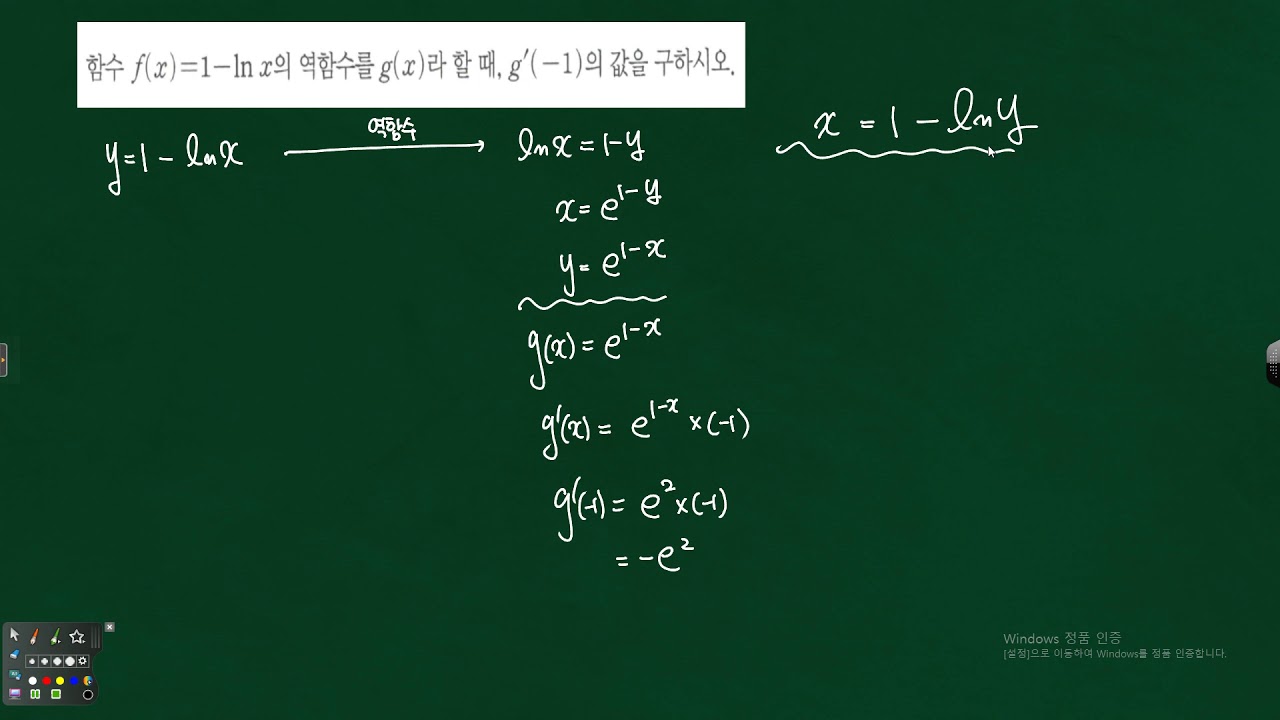 함수 f(x)=1−ln x의 역함수를 g(x)라 할 때, g′(−1)의 값을 구하시오.
y=1−lnx
역함수
lnx=1−y
x=e^{1−y}
y=e^{1−x}
g(x)=e^{1−x}
g′(x)=e^{1−x}×(−1)
g′(−1)=e^2×(−1)
=−e^2
x=1−lny
Windows 정품 인증
[설정]으로 이동하여 Windows를 정품 인증합니다.